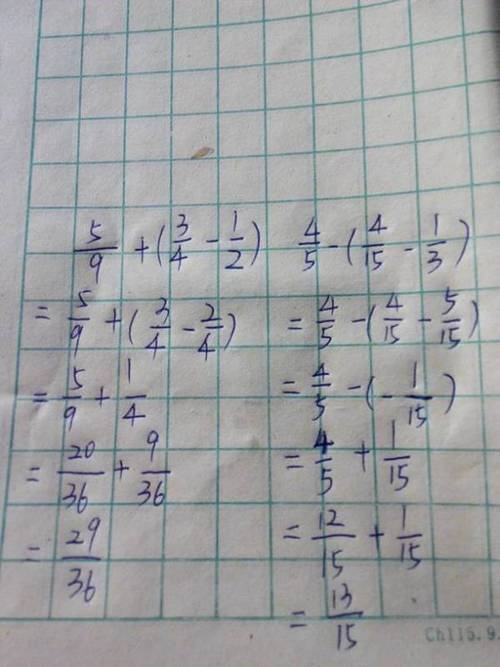 5/9 + (3/4 - 1/2)
= 5/9 + (3/4 - 2/4)
= 5/9 + 1/4
= 20/36 + 9/36
= 29/36
4/5 - (4/15 - 1/3)
= 4/5 - (4/15 - 5/15)
= 4/5 - (- 1/15)
= 4/5 + 1/15
= 12/15 + 1/15
= 13/15